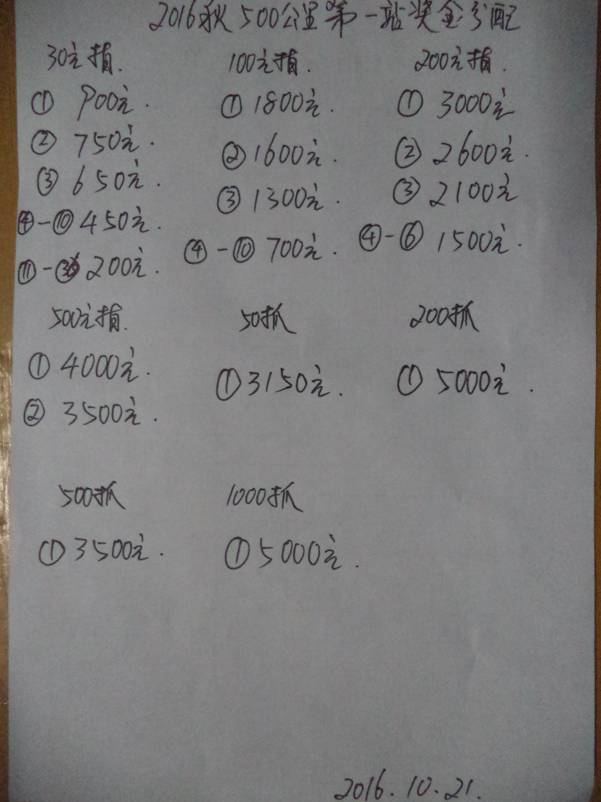 2016秋500公里第一站奖金分配
30元指. 100元指. 200元指.
① 900元. ① 1800元. ① 3000元
② 750元. ② 1600元. ② 2600元.
③ 650元. ③ 1300元. ③ 2100元
④-⑩ 450元. ④-⑩ 700元. ④-⑥ 1500元.
⑪- 200元.
500元指. 50抓 200抓
① 4000元. ① 3150元. ① 5000元.
② 3500元.
500抓 1000抓
① 3500元. ① 5000元.
2016.10.21.